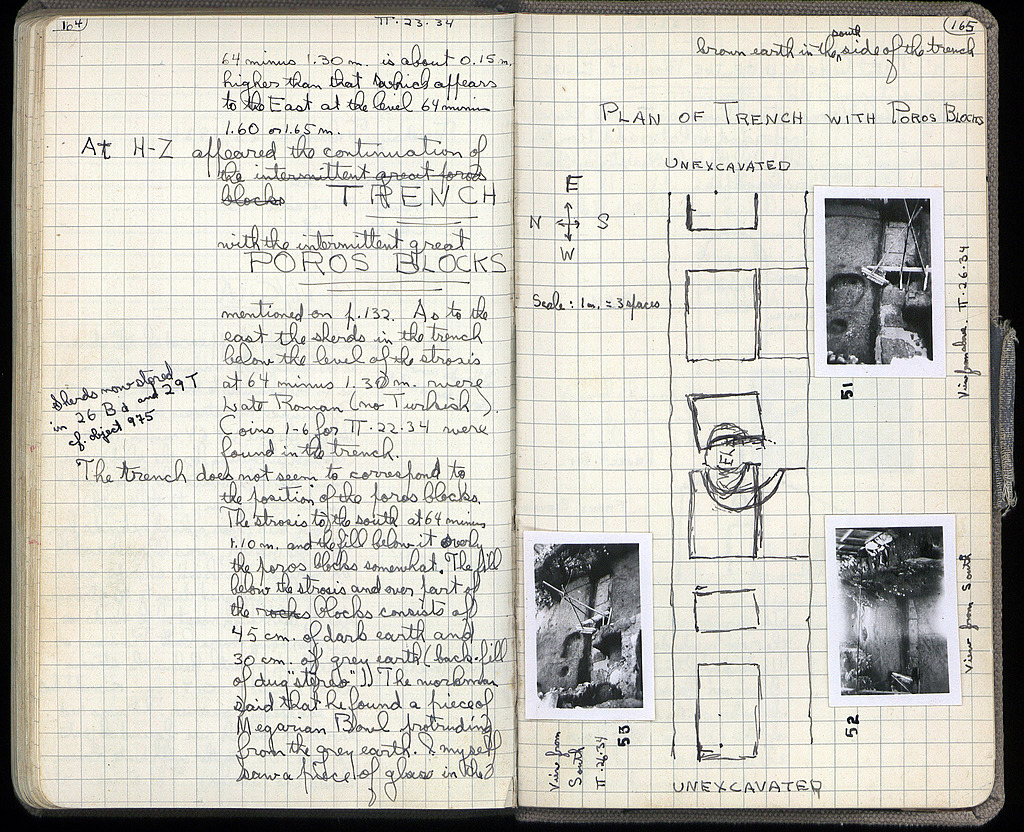 164
II·23·34
64 minus 1.30 m. is about 0.15 m.
higher than that which appears
to the East at the level 64 minus
1.60 or 1.65 m.
At H-Z appeared the continuation of
the intermittent great poros
blocks TRENCH
with the intermittent great
POROS BLOCKS
mentioned on p.132. As to the
east the sherds in the trench
below the level of the strosis
at 64 minus 1.30 m. were
Late Roman (no Turkish).
Coins 1-6 for II·22·34 were
found in the trench.
Sherds now stored
in 26 B d and 29 T
cf. object 975
The trench does not seem to correspond to
the position of the poros blocks.
The strosis to the south at 64 minus
1.10 m. and the fill below it overly
the poros blocks somewhat. The fill
below the strosis and over part of
the rocks blocks consists of
45 cm. of dark earth and
30 cm. of grey earth (back-fill
of dug "stereo"!) The workman
said that he found a piece of
Megarian Bowl protruding
from the grey earth. I myself
saw a piece of glass in the
165
brown earth in the south side of the trench
PLAN OF TRENCH WITH POROS BLOCKS
UNEXCAVATED
E
N S
W
Scale: 1 m. = 3 spaces
51
II·26·34
52
View from South
53
View from
South
II·26·34
UNEXCAVATED